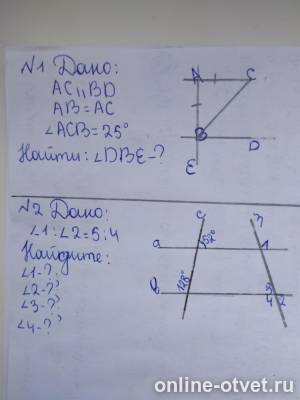 N1 Дано:
AC || BD
AB = AC
∠ACB = 25°
Найти: ∠DBE - ?
A C
B D
E
N2 Дано:
∠1 : ∠2 = 5 : 4
Найдите:
∠1 - ?
∠2 - ?
∠3 - ?
∠4 - ?
c
a 52° 1
b 128° 3
4 2
online-otvet.ru